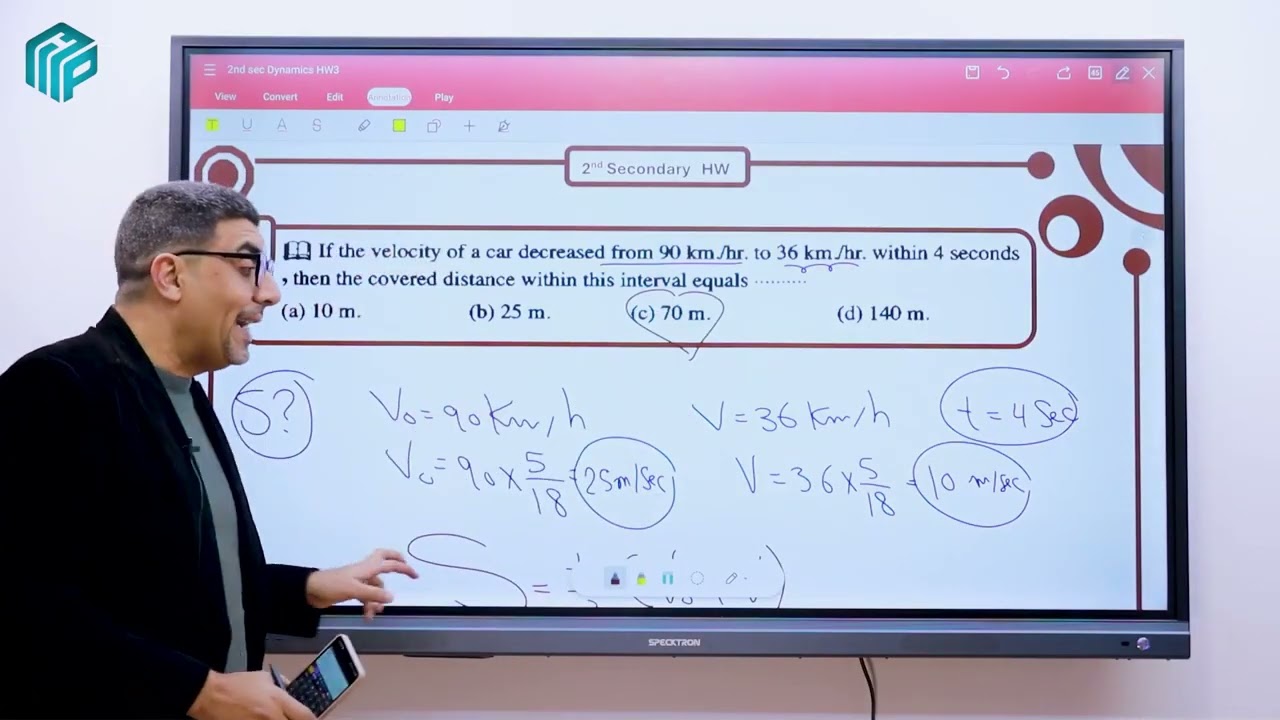 2nd sec Dynamics HW3
View Convert Edit Annotation Play
T U A S
2nd Secondary HW
If the velocity of a car decreased from 90 km./hr. to 36 km./hr. within 4 seconds
, then the covered distance within this interval equals ..........
(a) 10 m. (b) 25 m. (c) 70 m. (d) 140 m.
S? V₀ = 90 Km/h V = 36 Km/h t = 4 Sec
V₀ = 90 × 5/18 = 25 m/Sec V = 36 × 5/18 = 10 m/sec
S =
SPECKTRON